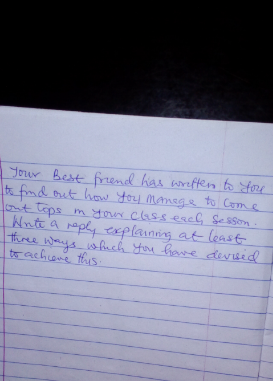 Your Best friend has written to you
to find out how you manage to come
out tops in your class each session.
Write a reply explaining at least
three ways which you have devised
to achieve this.